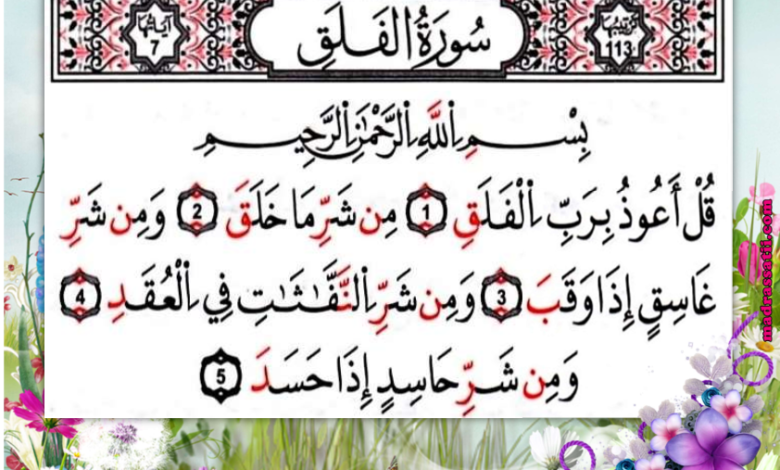 ترتيبها 113
سُورَةُ الفَلَقِ
آيَاتُهَا 7
بِسْمِ اِ۬للَّهِ اِ۬لرَّحْمَٰنِ اِ۬لرَّحِيمِ
قُلْ أَعُوذُ بِرَبِّ اِ۬لْفَلَقِ 1 مِن شَرِّ مَا خَلَقَ 2 وَمِن شَرِّ
غَاسِقٍ إِذَا وَقَبَ 3 وَمِن شَرِّ اِ۬لنَّفَّٰثَٰتِ فِي اِ۬لْعُقَدِ 4
وَمِن شَرِّ حَاسِدٍ إِذَا حَسَدَ 5
madrassatii.com